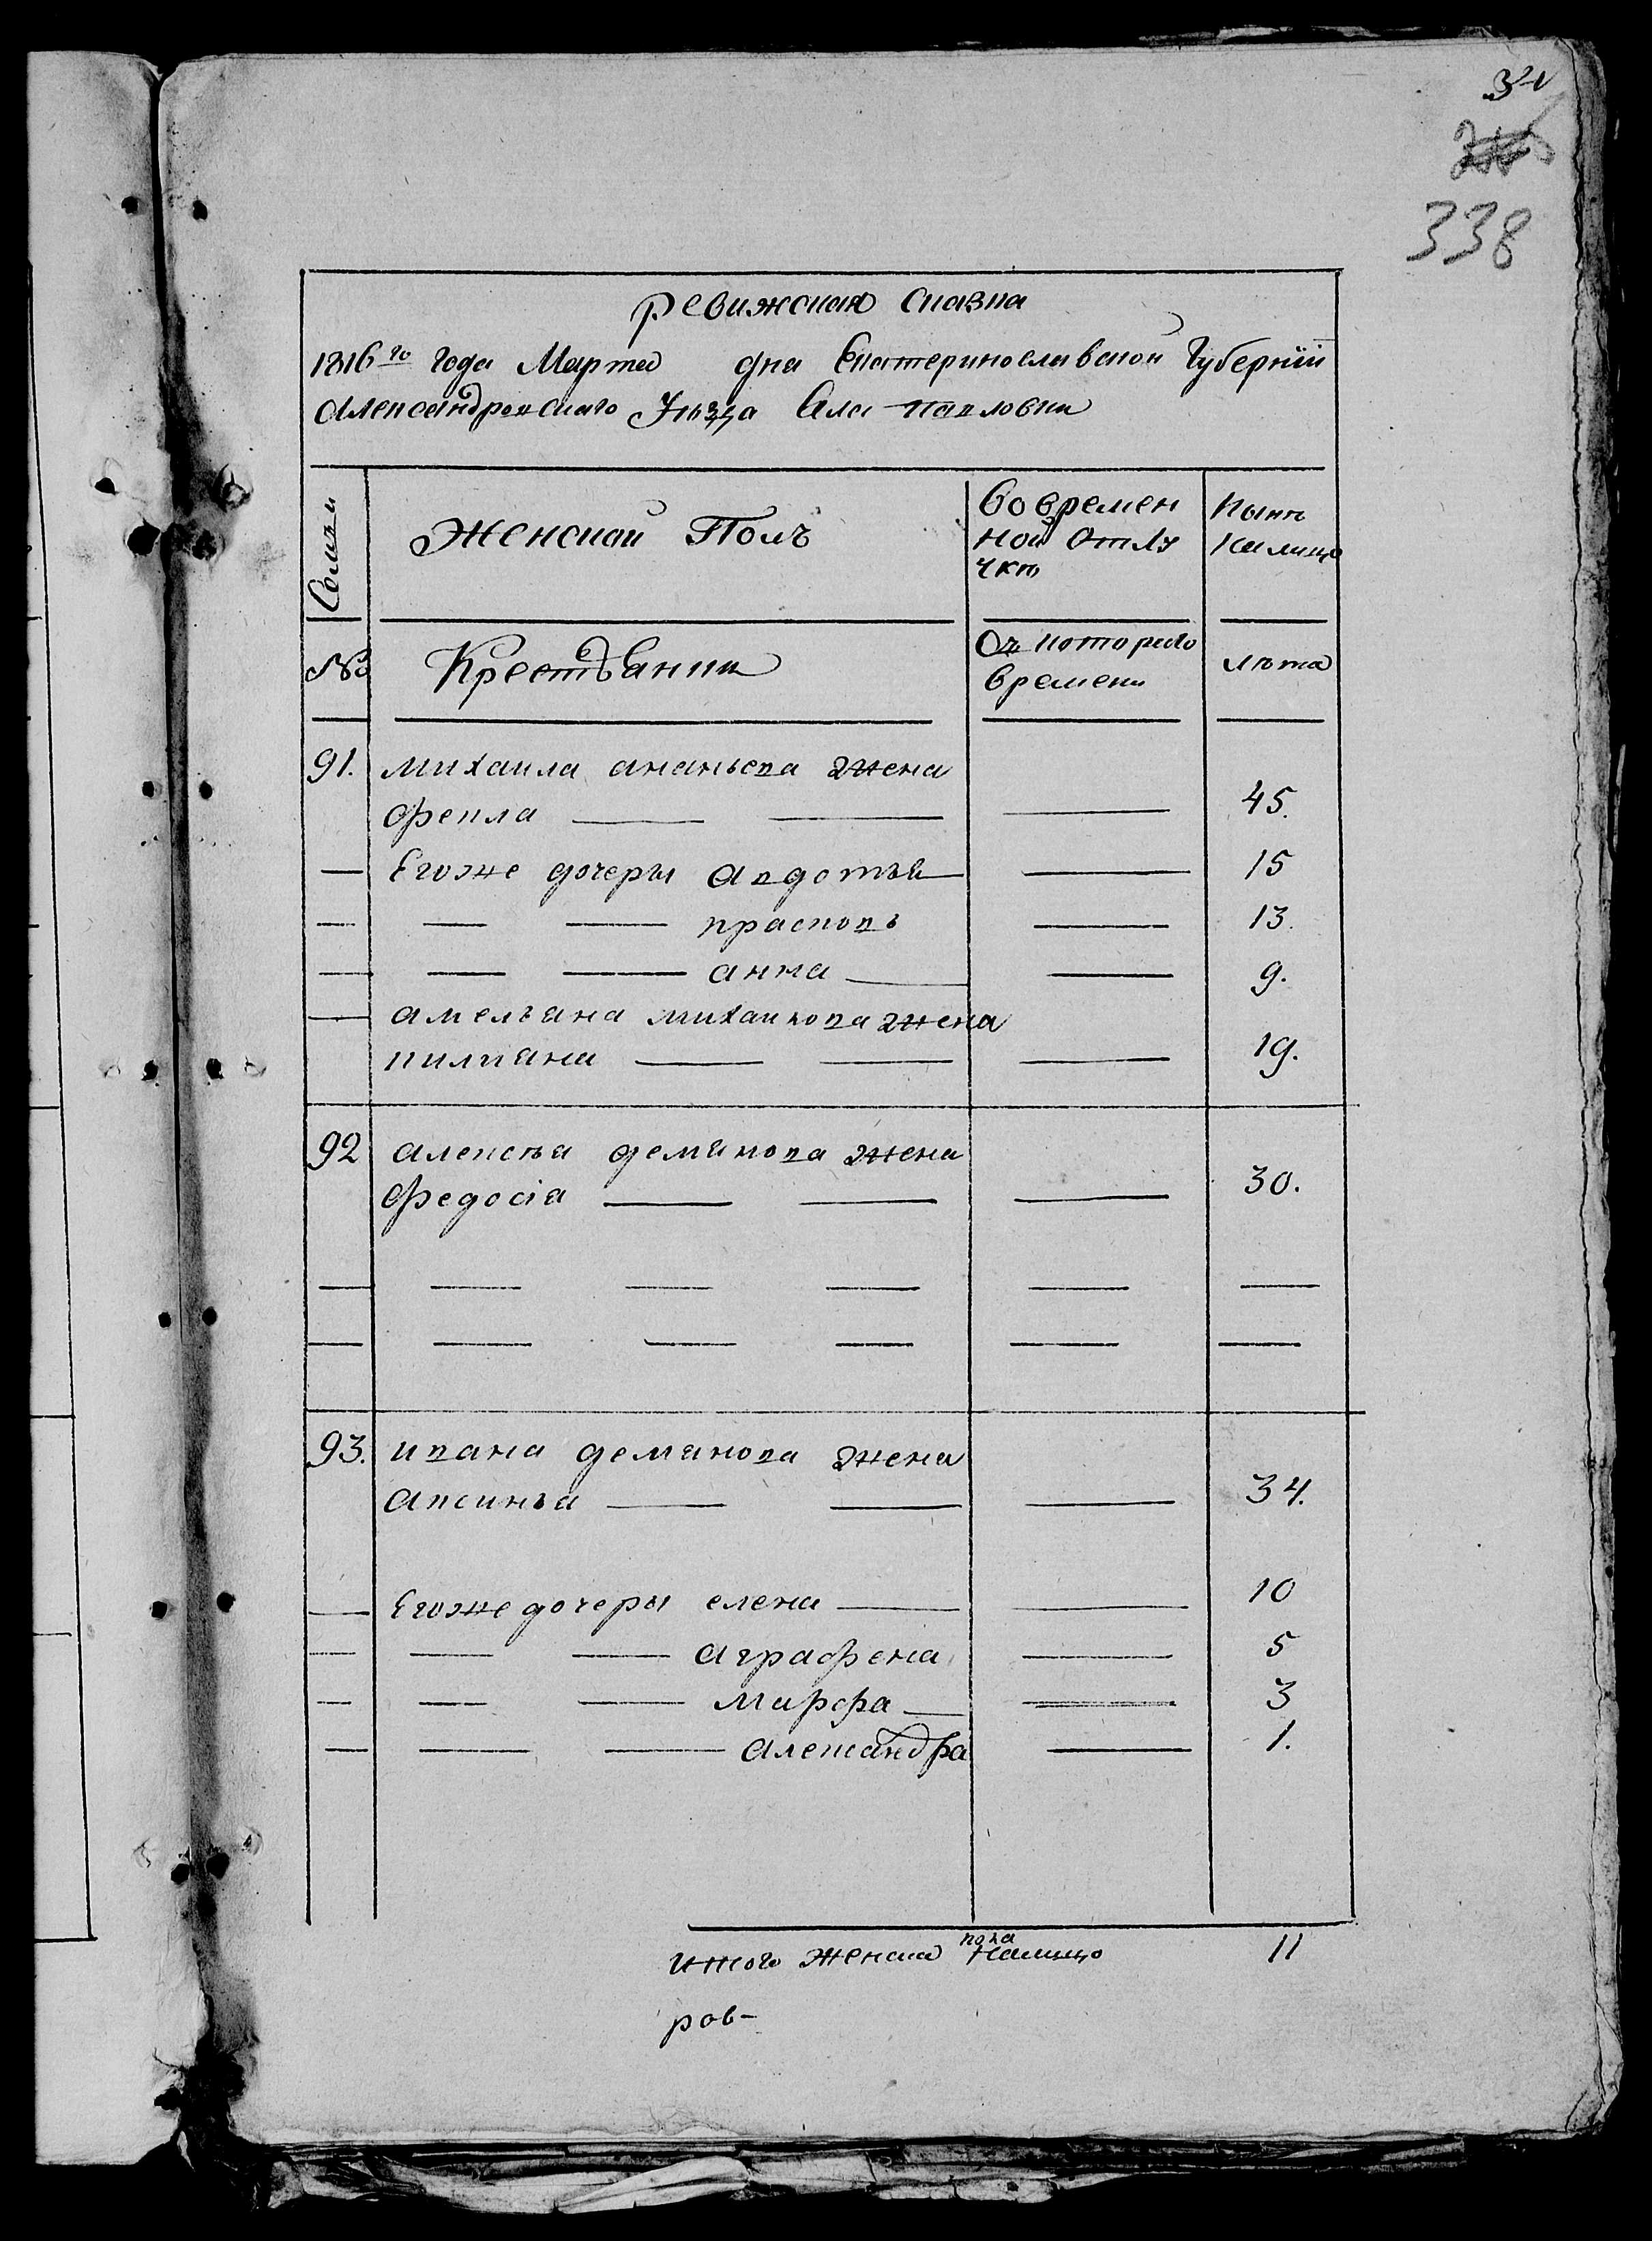 34
338
Ревижская скаска
1816го года Марта дня Екатеринославской Губернiи
Александровскаго Уѣзда Села Павловки
Семьи
Женской Полъ
Во времен
ной Отлу
чкѣ
Нынѣ
Налицо
№
Крестьянки
Съ котораго
времени
лѣта
91. Михаила ананьева жена
Фекла 45.
Егоже дочеры авдотья 15
прасковь 13.
анна 9.
амельяна михаилова жена
килиана 19.
92 алексѣя демянова жена
Федосiя 30.
93. ивана демянова жена
аксинья 34.
Егоже дочеры елена 10
аграфена 5
марфа 3
александра 1.
Итого женска пола налицо 11
ров-